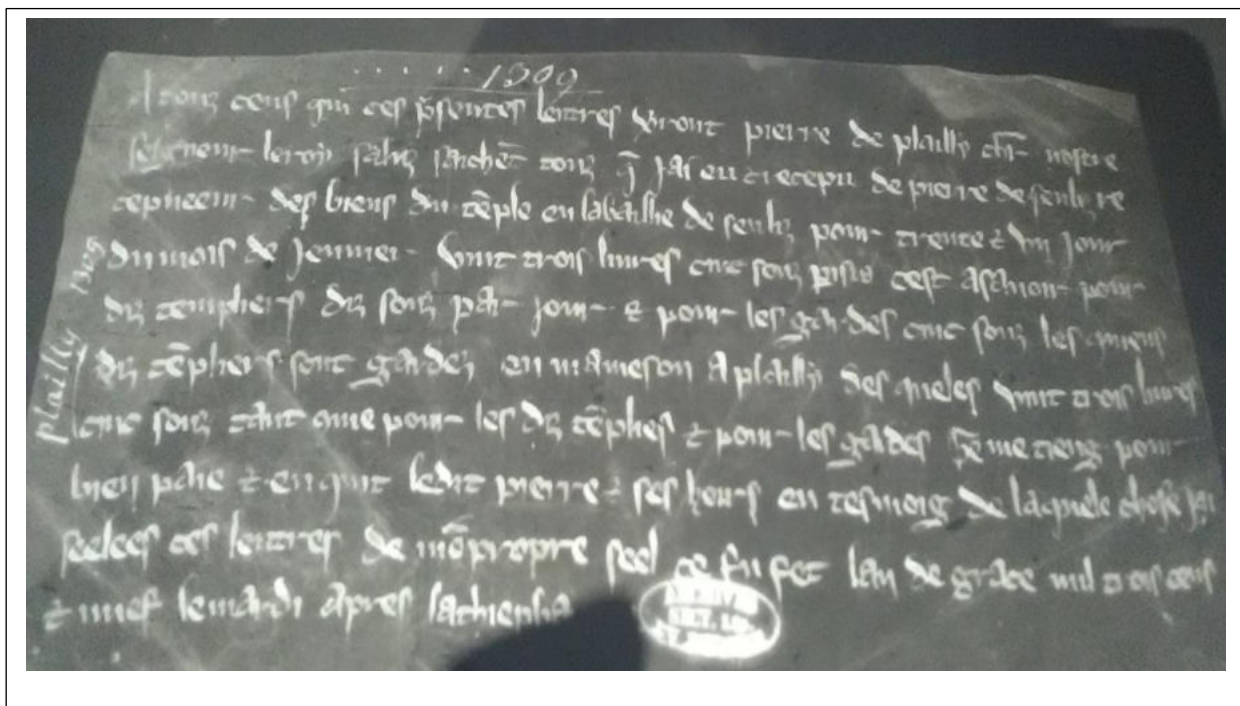 1309
A touz ceus qui ces p̃sentes lettres verront pierre de plailly chr̃ nostre
seigneur le roy saluz sachẽt touz q̃ jai eu et recepu de pierre de senliz re
cepueeur des biens du tẽple en la baillie de senliz pour trente & un jour
du mois de Jenvier vint trois livres cinc souz p̃sis cest asavoir pour
diz templiers diz souz par jour & pour les gardes cinc souz les quieus
diz tẽpliers sont gardez en ma meson a plailly des queles vint trois livres
cinc souz tant que pour les diz tẽpliers & pour les gardes je me tieng pour
bien paie & en quit ledit pierre & ses hoirs en tesmoig de laquele chose jai
seelees ces lettres de mõ propre seel ce fu fet lan de grace mil trois cens
& nuef le mardi apres la thiephai
plailly 1309
ARCHIVES